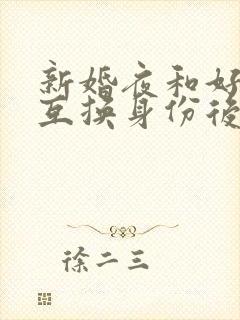 新婚夜和好
互换身份后
徐二三